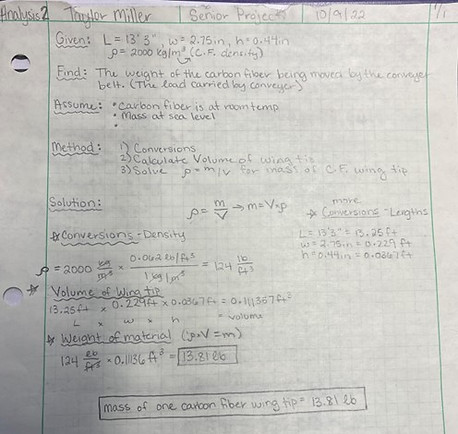 Analysis 2 Taylor Miller Senior Project 10/9/22 1/1
Given: L = 13' 3" w = 2.75 in, h = 0.44 in
ρ = 2000 kg/m³ (C.F. density)
Find: The weight of the carbon fiber being moved by the conveyer
belt. (The load carried by conveyer)
Assume: • Carbon fiber is at room temp
• Mass at sea level
•
Method: 1) Conversions
2) Calculate Volume of wing tip
3) Solve ρ = m/v for mass of C.F. wing tip
Solution: ρ = m/V → m = V·ρ
more
Conversions - Lengths
L = 13'3" = 13.25 ft
w = 2.75in = 0.229 ft
h = 0.44in = 0.0367 ft
Conversions - Density
ρ = 2000 kg/m³ × 0.062 lb/ft³ / 1 kg/m³ = 124 lb/ft³
Volume of wing tip
13.25ft × 0.229ft × 0.0367ft = 0.111357ft³
L × w × h = volume
Weight of material (ρ·V = m)
124 lb/ft³ × 0.11136 ft³ = 13.81 lb
mass of one carbon fiber wing tip = 13.81 lb